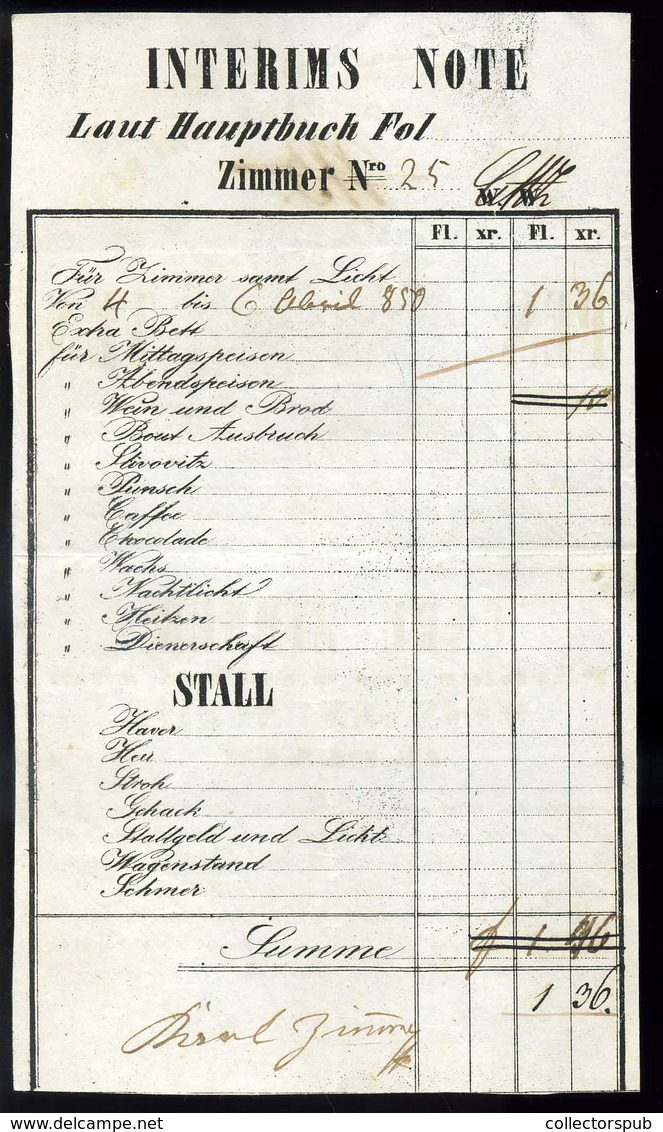 INTERIMS NOTE
Laut Hauptbuch Fol
Zimmer Nro 25
W. W.
Fl. xr. Fl. xr.
Für Zimmer samt Licht
Von 4 bis 6 Abril 850 1 36
Extra Bett
für Mittagspeisen
" Abendspeisen
" Wein und Brod 10
" Bout Ausbruch
" Slivovitz
" Punsch
" Caffee
" Chocolade
" Wachs
" Nachtlicht
" Heitzen
" Dienerschaft
STALL
Haver
Heu
Stroh
Gehack
Stallgeld und Licht
Wagenstand
Schmer
Summe f 1 46
1 36.
Karl
collectorspub.com